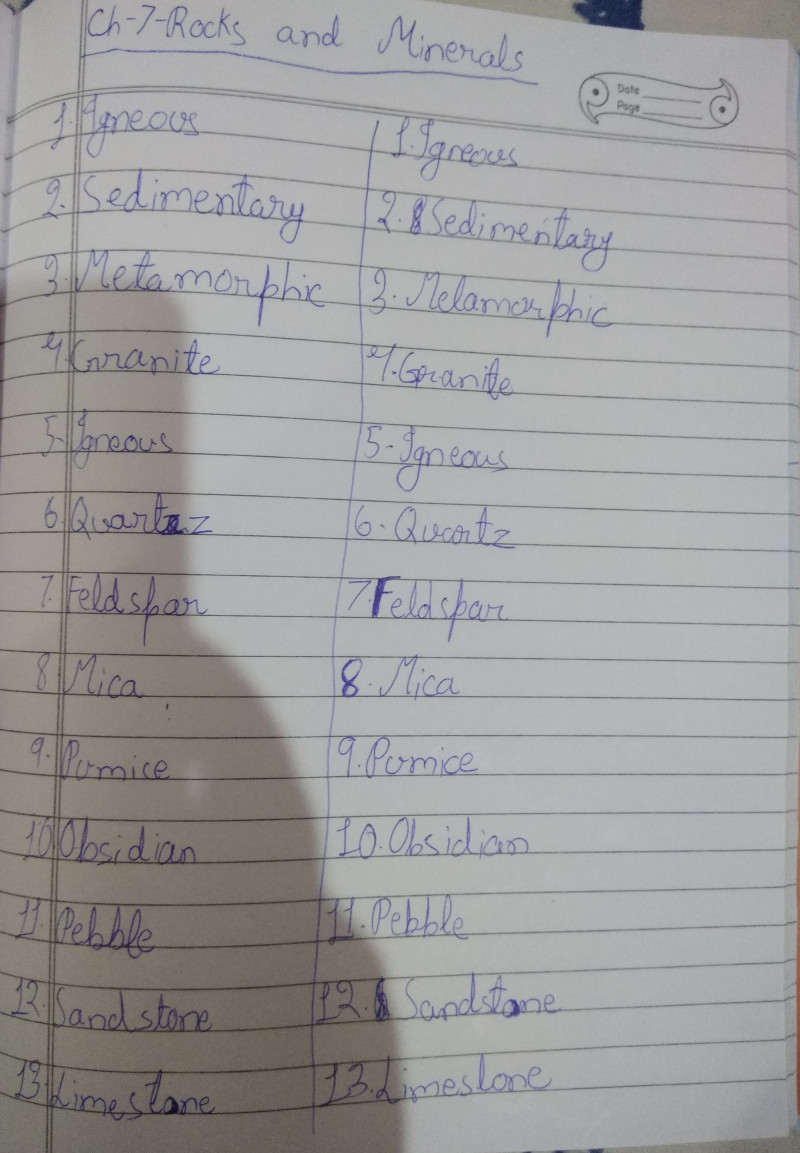 Ch-7-Rocks and Minerals
Date
Page
1. Igneous 1. Igneous
2. Sedimentary 2. Sedimentary
3. Metamorphic 3. Metamorphic
4. Granite 4. Granite
5- Igneous 5- Igneous
6. Quartz 6. Quartz
7. Feldspar 7. Feldspar
8 Mica 8. Mica
9. Pumice 9. Pumice
10 Obsidian 10. Obsidian
11. Pebble 11. Pebble
12. Sandstone 12. Sandstone
13. Limestone 13. Limestone